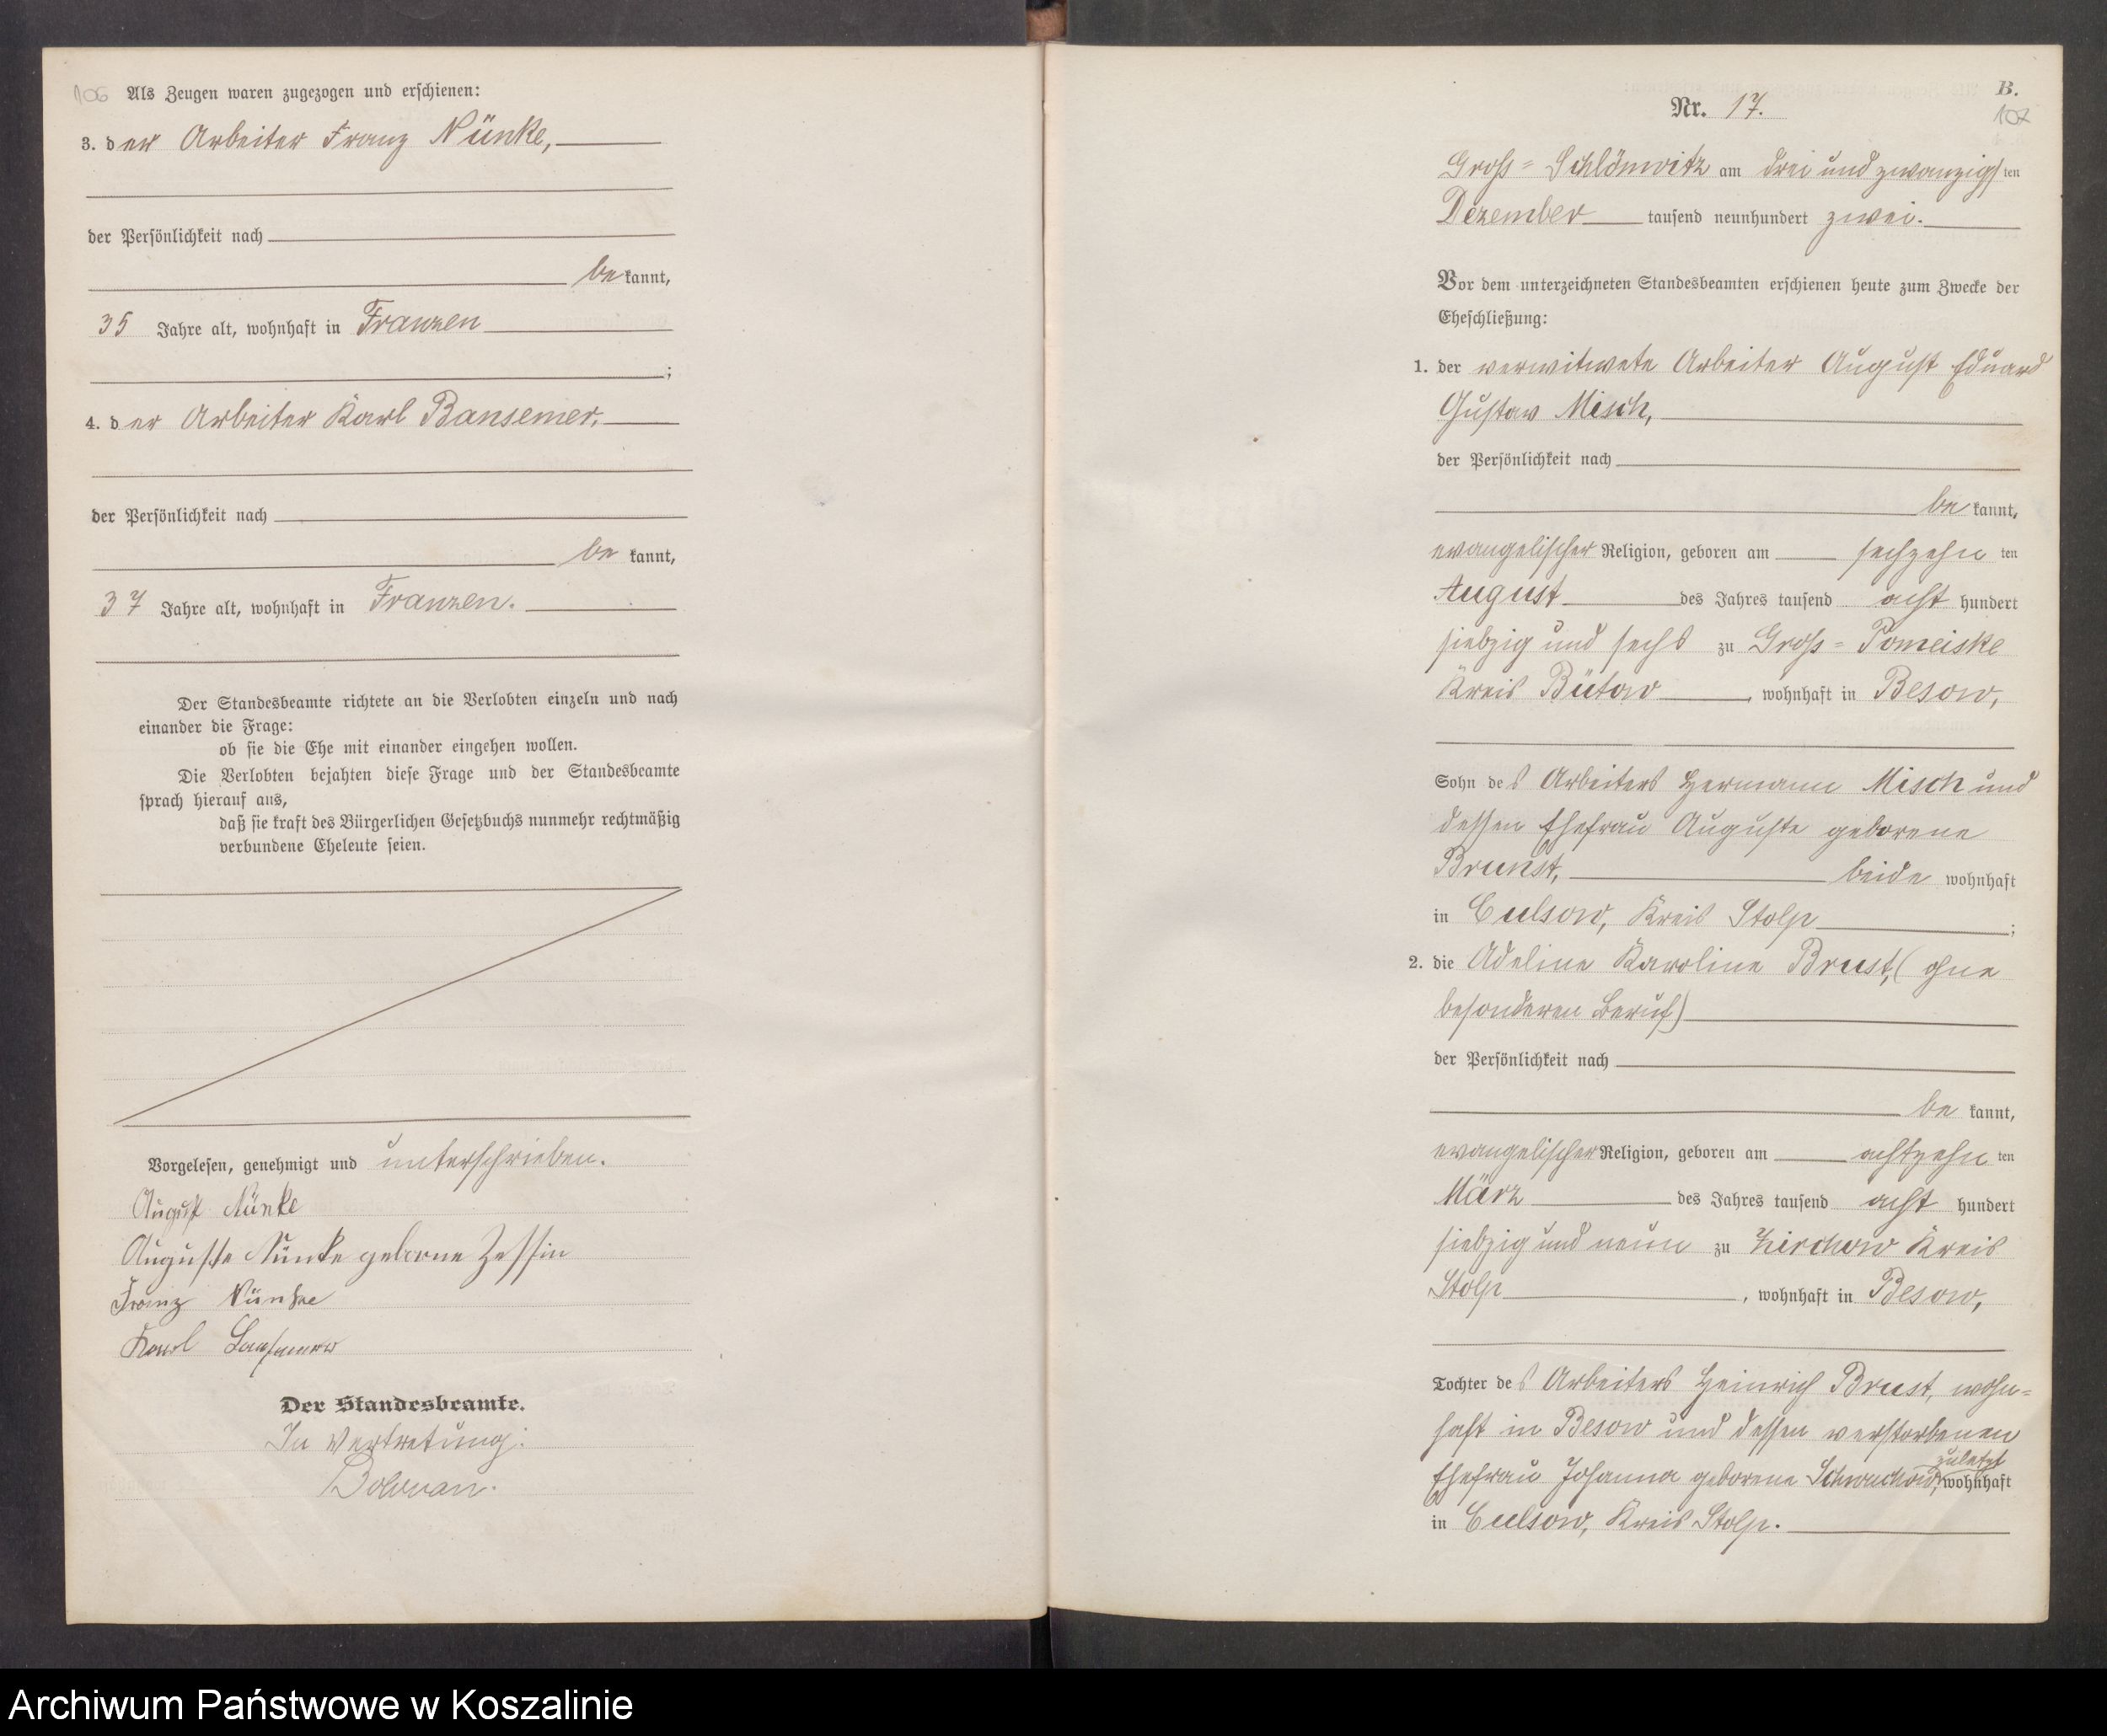 106 Als Zeugen waren zugezogen und erschienen:
3. der Arbeiter Franz Nünke,
der Persönlichkeit nach
bekannt,
35 Jahre alt, wohnhaft in Franzen
;
4. der Arbeiter Karl Bansemer,
der Persönlichkeit nach
be kannt,
37 Jahre alt, wohnhaft in Franzen.
Der Standesbeamte richtete an die Verlobten einzeln und nach
einander die Frage:
ob sie die Ehe mit einander eingehen wollen.
Die Verlobten bejahten diese Frage und der Standesbeamte
sprach hierauf aus,
daß sie kraft des Bürgerlichen Gesetzbuchs nunmehr rechtmäßig
verbundene Eheleute seien.
Vorgelesen, genehmigt und unterschrieben.
August Nünke
Auguste Nünke geborne Zessin
Franz Nünke
Karl Bansemer
Der Standesbeamte.
In Vertretung:
B.
Nr. 17.
107
Groß-Schlönwitz am drei und zwanzigsten
Dezember tausend neunhundert zwei.
Vor dem unterzeichneten Standesbeamten erschienen heute zum Zwecke der
Eheschließung:
1. der verwitwete Arbeiter August Eduard
Gustav Misch,
der Persönlichkeit nach
be kannt,
evangelischer Religion, geboren am sechzehn ten
August des Jahres tausend acht hundert
siebzig und sechs zu Groß-Pomeiske
Kreis Bütow, wohnhaft in Besow,
Sohn des Arbeiters Hermann Misch und
dessen Ehefrau Auguste geborene
Brunst, beide wohnhaft
in Culsow, Kreis Stolp ;
2. die Adeline Karoline Brust, (ohne
besonderen Beruf)
der Persönlichkeit nach
be kannt,
evangelischer Religion, geboren am achtzehn ten
März des Jahres tausend acht hundert
siebzig und neun zu Zirchow Kreis
Stolp, wohnhaft in Besow,
Tochter des Arbeiters Heinrich Brust, wohn-
haft in Besow und dessen verstorbenen
zuletzt
Ehefrau Johanna geborene Schwuchow, wohnhaft
in Culsow, Kreis Stolp.
Archiwum Państwowe w Koszalinie